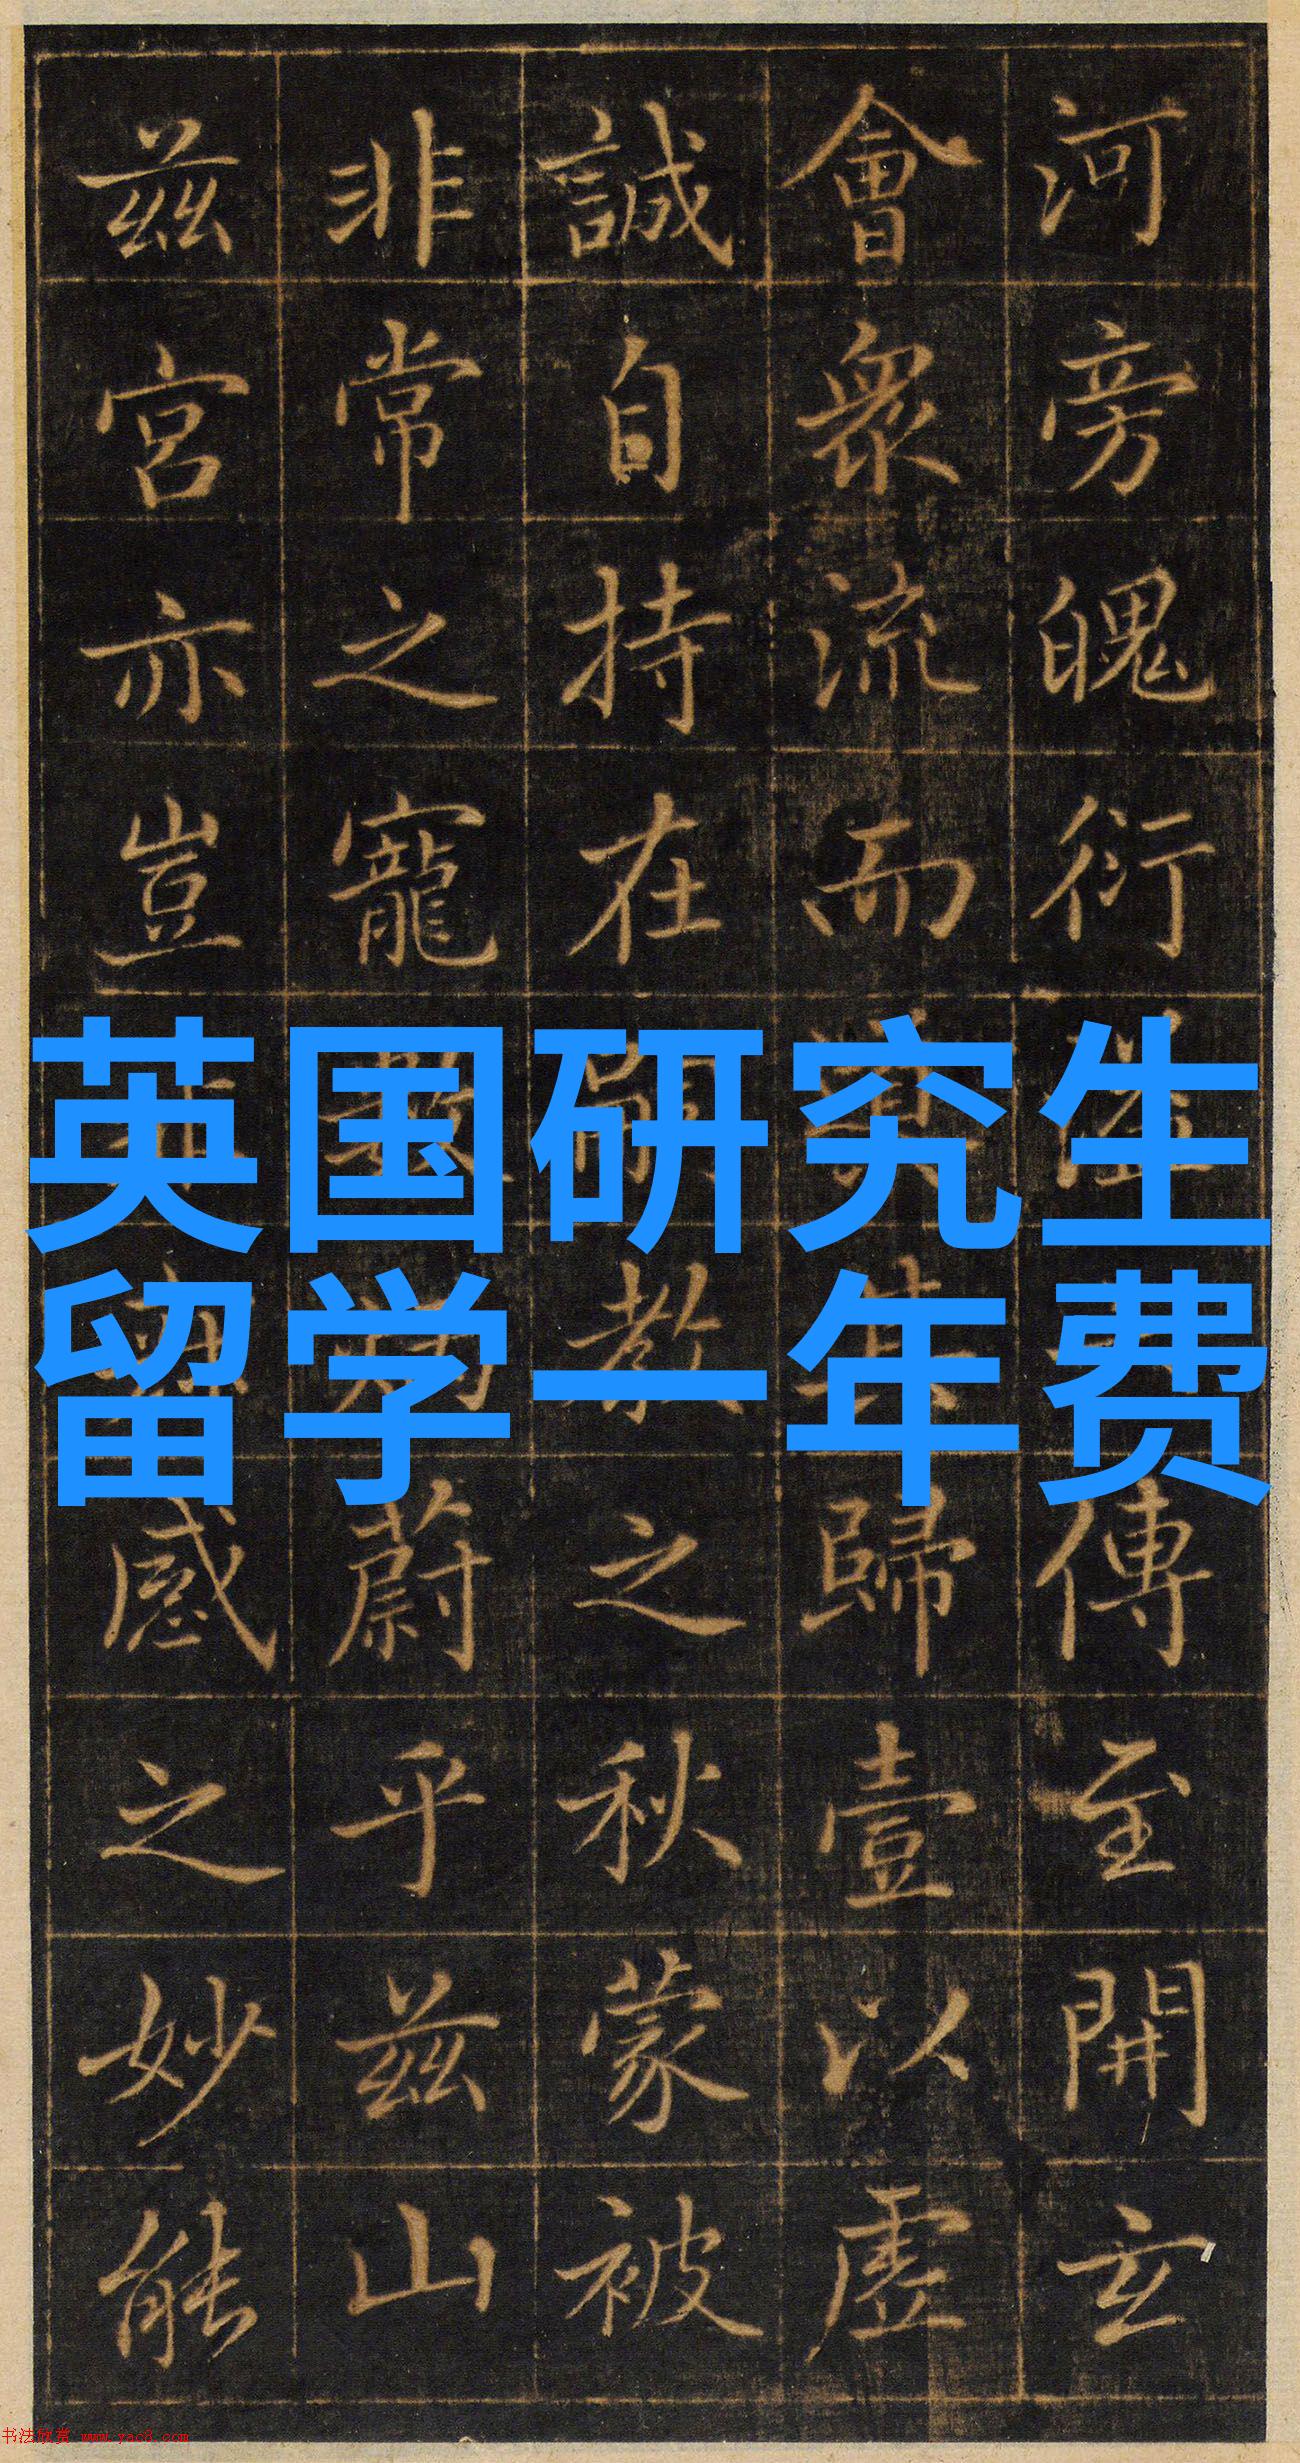 河旁魄衍傳至開玄
會衆流而歸壹以虛
誠自持在嗣教之秋蒙被
非常之寵蔚乎茲山
茲宮亦豈感之妙能
英国研究生
留学一年费
书法欣赏 www.yac8.com